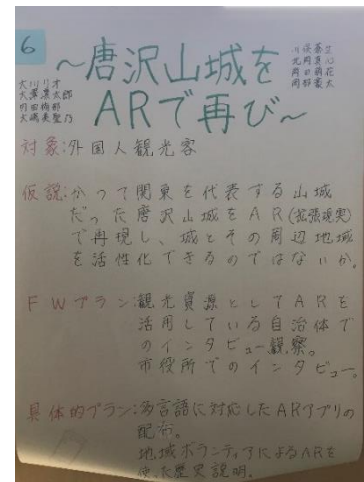 6
〜唐沢山城を
ARで再び〜
対象:外国人観光客
仮説:かつて関東を代表する山城
だった唐沢山城をAR(拡張現実)
で再現し、城とその周辺地域
を活性化できるのではないか。
FWプラン:観光資源としてARを
活用している自治体で
のインタビュー、観察。
市役所でのインタビュー。
具体的プラン:多言語に対応したARアプリの
配布。
地域ボランティアによるARを
使った歴史説明。